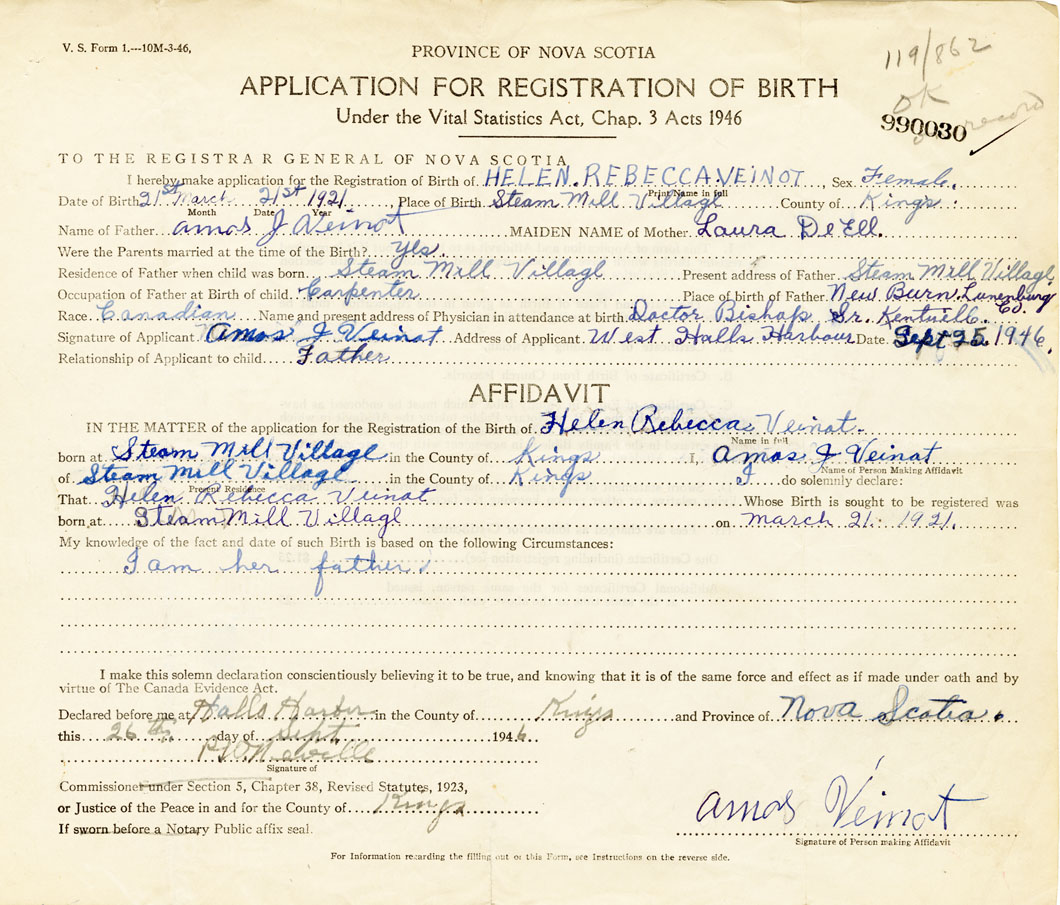 V. S. Form 1.---10M-3-46,
119/862
PROVINCE OF NOVA SCOTIA
APPLICATION FOR REGISTRATION OF BIRTH
ok
record
Under the Vital Statistics Act, Chap. 3 Acts 1946
990030
TO THE REGISTRAR GENERAL OF NOVA SCOTIA
I hereby make application for the Registration of Birth of HELEN. REBECCA. VEINOT, Sex Female.
Print Name in full
Date of Birth 21st March 21st 1921 Place of Birth Steam Mill Village County of Kings.
Month Date Year
Name of Father amos J Veinot MAIDEN NAME of Mother Laura DeEll.
Were the Parents married at the time of the Birth? yes.
Residence of Father when child was born Steam Mill Village Present address of Father Steam Mill Village
Occupation of Father at Birth of child Carpenter Place of birth of Father New Burn Lunenburg Co.
Race Canadian Name and present address of Physician in attendance at birth Doctor Bishop Sr. Kentville.
Signature of Applicant Amos J Veinat Address of Applicant West Halls Harbour Date Sept 25. 1946.
Relationship of Applicant to child Father
AFFIDAVIT
IN THE MATTER of the application for the Registration of the Birth of Helen Rebecca Veinat.
Name in full
born at Steam Mill Village in the County of Kings I, Amos J Veinat
Name of Person Making Affidavit
of Steam Mill Village in the County of Kings I do solemnly declare:
Present Residence
That Helen Rebecca Veinat Whose Birth is sought to be registered was
born at Steam Mill Village on march 21. 1921.
My knowledge of the fact and date of such Birth is based on the following Circumstances:
I am her father
I make this solemn declaration conscientiously believing it to be true, and knowing that it is of the same force and effect as if made under oath and by
virtue of The Canada Evidence Act.
Declared before me at Halls Harbor in the County of Kings and Province of Nova Scotia.
this 26th day of Sept 1946
Neville
Signature of
Commissioner under Section 5, Chapter 38, Revised Statutes, 1923,
or Justice of the Peace in and for the County of Kings
If sworn before a Notary Public affix seal.
amos Veinot
Signature of Person making Affidavit
For Information regarding the filling out of this Form, see Instructions on the reverse side.